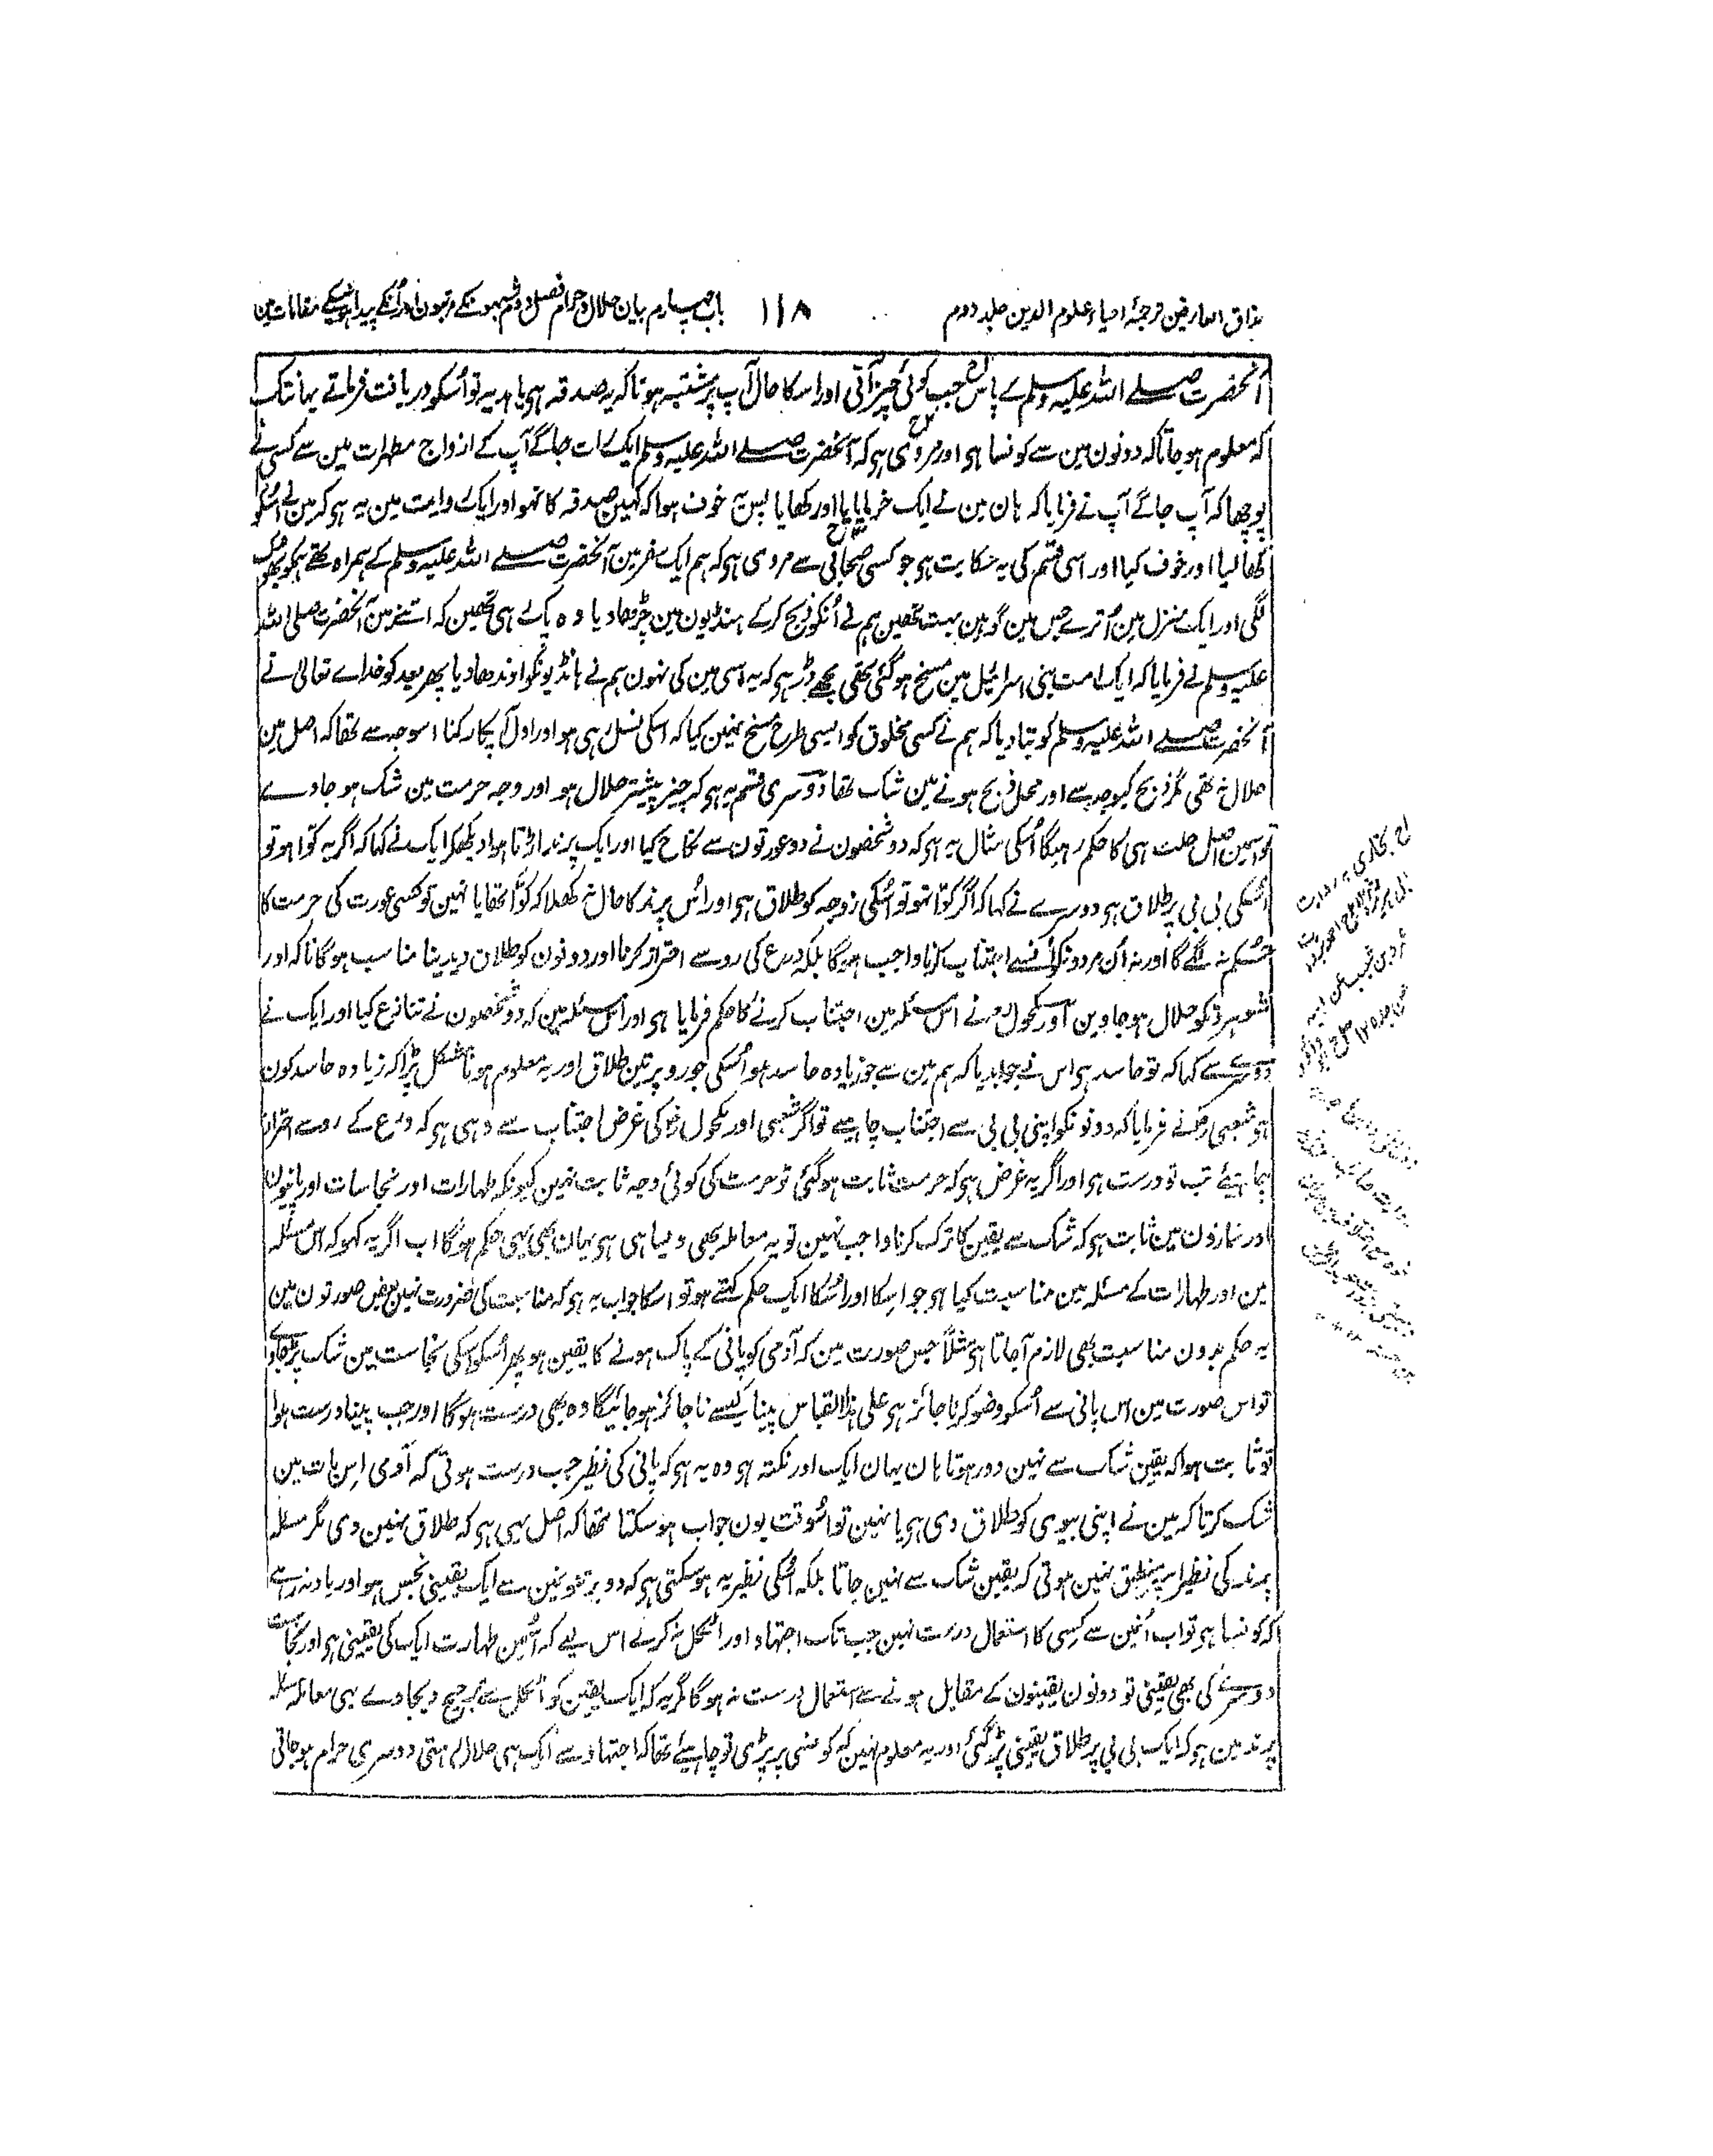 مذاق العارفین ترجمۂ احیاء علوم الدین جلد دوم
۱۱۸
باب چہارم بیان حلال و حرام فصل دوم شبہونکے مرتبون اور اُنکے پیدا ہونیکے مقامات مین
آنحضرت صلے اللہ علیہ وسلم کے پاس جب کوئی چیز آتی اور اسکا حال آپ پر مشتبہ ہوتا کہ یہ صدقہ ہی یا ہدیہ تو اُسکو دریافت فرماتے یہانتک
کہ معلوم ہو جاتا کہ دونون مین سے کونسا ہی اور مروی ہی کہ آنحضرت صلے اللہ علیہ وسلم ایک رات جاگے آپ کے ازواج مطہرات مین سے کسی نے
پوچھا کہ آپ جاگے آپ نے فرمایا کہ ہان مین نے ایک خرما پایا اور کھایا پس یہ خوف ہوا کہ کہین صدقہ کا نہو اور ایک روایت مین یہ ہی کہ مین نے اُسکو
کھا لیا اور خوف کیا اور اسی قسم کی یہ حکایت ہی جو کسی صحابی سے مروی ہی کہ ہم ایک سفر مین آنحضرت صلے اللہ علیہ وسلم کے ہمراہ تھے ہمکو بھوک
لگی اور ایک منزل مین اُترے جس مین گوہین بہت تھین ہم نے اُنکو ذبح کرکے ہنڈیون مین چڑھا دیا وہ پک ہی تھین کہ اتنے مین آنحضرت صلی اللہ
علیہ وسلم نے فرمایا کہ ایک امت بنی اسرائیل مین مسخ ہوگئی تھی مجھے ڈر ہی کہ یہ اسی مین کی نہون ہم نے ہانڈیونکو اوندھا دیا پھر بعد کو خداے تعالیٰ نے
آنحضرت صلے اللہ علیہ وسلم کو بتا دیا کہ ہم نے کسی مخلوق کو ایسی طرح مسخ نہین کیا کہ اسکی نسل رہی ہو اور اول آپکا رکنا اسوجہ سے تھا کہ اصل مین
حلال نہ تھی مگر ذبح کیوجہ سے اور محل ذبح ہونے مین شک تھا دوسری قسم یہ ہی کہ چیز پیشتر حلال ہو اور وجہ حرمت مین شک ہو جاوے
تو اسمین اصل حلت ہی کا حکم رہیگا اُسکی مثال یہ ہی کہ دو شخصون نے دو عورتون سے نکاح کیا اور ایک پرند اڑتا ہوا دیکھکر ایک نے کہا کہ اگر یہ کوا ہو تو
اُسکی بی بی پر طلاق ہی دوسرے نے کہا کہ اگر کوّا نہو تو اُسکی زوجہ کو طلاق ہی اور اُس پرند کا حال نہ کھلا کہ کوّا تھا یا نہین تو کسی عورت کی حرمت کا
حکم نہ لگے گا اور نہ اُن مردونکو اُنسے اجتناب کرنا واجب ہوگا بلکہ ورع کی رو سے احتراز کرنا اور دونون کو طلاق دیدینا مناسب ہوگا تاکہ اور
شوہرون کو حلال ہو جاوین اور مکحول رح نے اس مسئلہ مین اجتناب کرنے کا حکم فرمایا ہی اور اس مسئلہ مین کہ دو شخصون نے تنازع کیا اور ایک نے
دوسرے سے کہا کہ تو حاسد ہی اس نے جوابدیا کہ ہم مین سے جو زیادہ حاسد ہو اُسکی جورو پر تین طلاق اور یہ معلوم ہونا مشکل پڑا کہ زیادہ حاسد کون
ہی شعبی رح نے فرمایا کہ دونونکو اپنی بی بی سے اجتناب چاہیے تو اگر شعبی اور مکحول رح کی غرض اجتناب سے وہی ہی کہ ورع کے روسے احتراز
چاہئیے تب تو درست ہی اور اگر یہ غرض ہی کہ حرمت ثابت ہوگئی تو حرمت کی کوئی وجہ ثابت نہین کیونکہ طہارات اور نجاسات اور پانیون
اور نمازون مین ثابت ہی کہ شک سے یقین کا ترک کرنا واجب نہین تو یہ معاملہ بھی ویسا ہی ہی یہان بھی یہی حکم ہوگا اب اگر یہ کہو کہ اس مسئلہ
مین اور طہارات کے مسئلہ مین مناسبت کیا ہی جو اسکا اور اُسکا ایک حکم کہتے ہو تو اسکا جواب یہ ہی کہ مناسبت کی ضرورت نہین بعض صورتون مین
یہ حکم بدون مناسبت بھی لازم آجاتا ہی مثلاً جس صورت مین کہ آدمی کو پانی کے پاک ہونے کا یقین ہو پھر اُسکو اسکی نجاست مین شک پڑ جاوے
تو اس صورت مین اس پانی سے اُسکو وضو کرنا جائز ہی علی ہذا القیاس پینا کیسے ناجائز ہو جائیگا وہ بھی درست ہوگا اور جب پینا درست ہوا
تو ثابت ہوا کہ یقین شک سے نہین دور ہوتا ہان یہان ایک اور نکتہ ہی وہ یہ ہی کہ پانی کی نظیر جب درست ہوتی کہ آدمی اِس بات مین
شک کرتا کہ مین نے اپنی بیوی کو طلاق دی ہی یا نہین تو اسوقت یون جواب ہو سکتا تھا کہ اصل یہی ہی کہ طلاق نہین دی مگر مسئلہ
پرند کی نظیر اسپر منطبق نہین ہوتی کہ یقین شک سے نہین جاتا بلکہ اُسکی نظیر یہ ہو سکتی ہی کہ دو برتنون مین سے ایک یقینی نجس ہو اور یاد نہ رہے
کہ کونسا ہی تو اب اُنمین سے کسی کا استعمال درست نہین جب تک اجتہاد اور اٹکل نہ کرلے اس لیے کہ اُسمین طہارت ایک کی یقینی ہی اور نجاست
دوسرے کی بھی یقینی تو دونون یقینون کے مقابل ہونے سے استعمال درست نہ ہوگا مگر یہ کہ ایک یقین کو اٹکل سے ترجیح دیجاوے یہی معاملہ مسئلہ
پرند مین ہی کہ ایک بی بی پر طلاق یقینی پڑ گئی اور یہ معلوم نہین کہ کونسی پر پڑی تو چاہیئے تھا کہ اجتہاد سے ایک ہی حلال رہتی دوسری حرام ہو جاتی